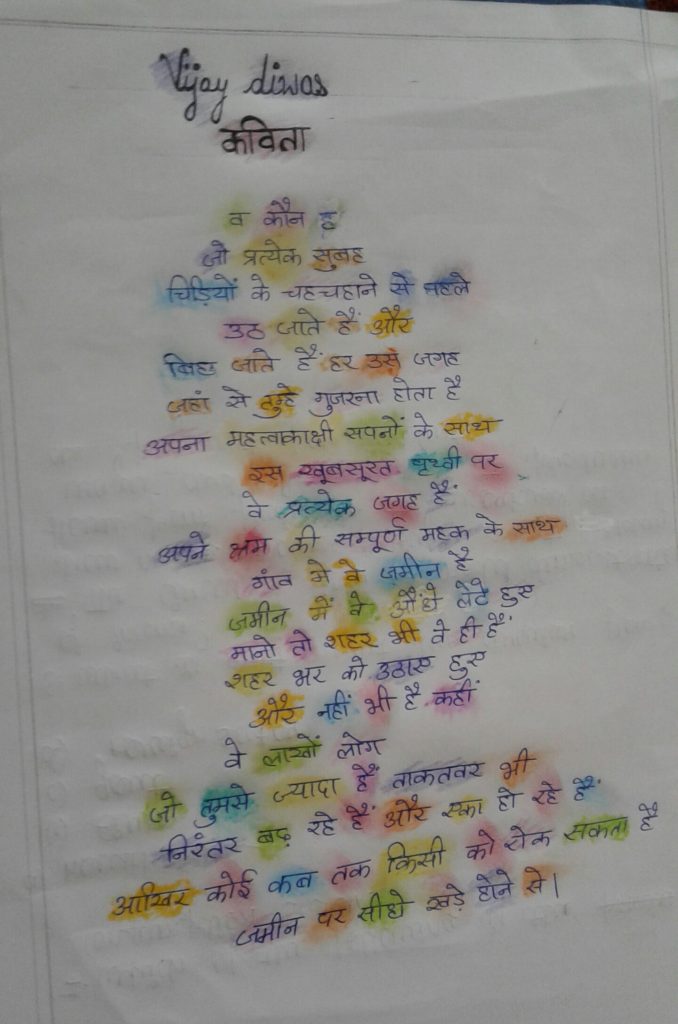 Vijay diwas
कविता
व कौन है
जो प्रत्येक सुबह
चिड़ियों के चहचहाने से पहले
उठ जाते हैं और
बिछ जाते हैं हर उस जगह
जहां से तुम्हे गुजरना होता है
अपना महत्वाकाक्षी सपनों के साथ
इस खूबसूरत पृथ्वी पर
वे प्रत्येक जगह हैं
अपने श्रम की सम्पूर्ण महक के साथ
गांव मे वे ज़मीन है
जमीन में वे औंधे लेटे हुए
मानो तो शहर भी वे ही हैं
शहर भर को उठाए हुए
और नहीं भी है कहीं
वे लाखों लोग
जो तुमसे ज्यादा हैं ताकतवर भी
निरंतर बढ़ रहे हैं और एका हो रहे हैं
आखिर कोई कब तक किसी को रोक सकता है
जमीन पर सीधे खड़े होने से।